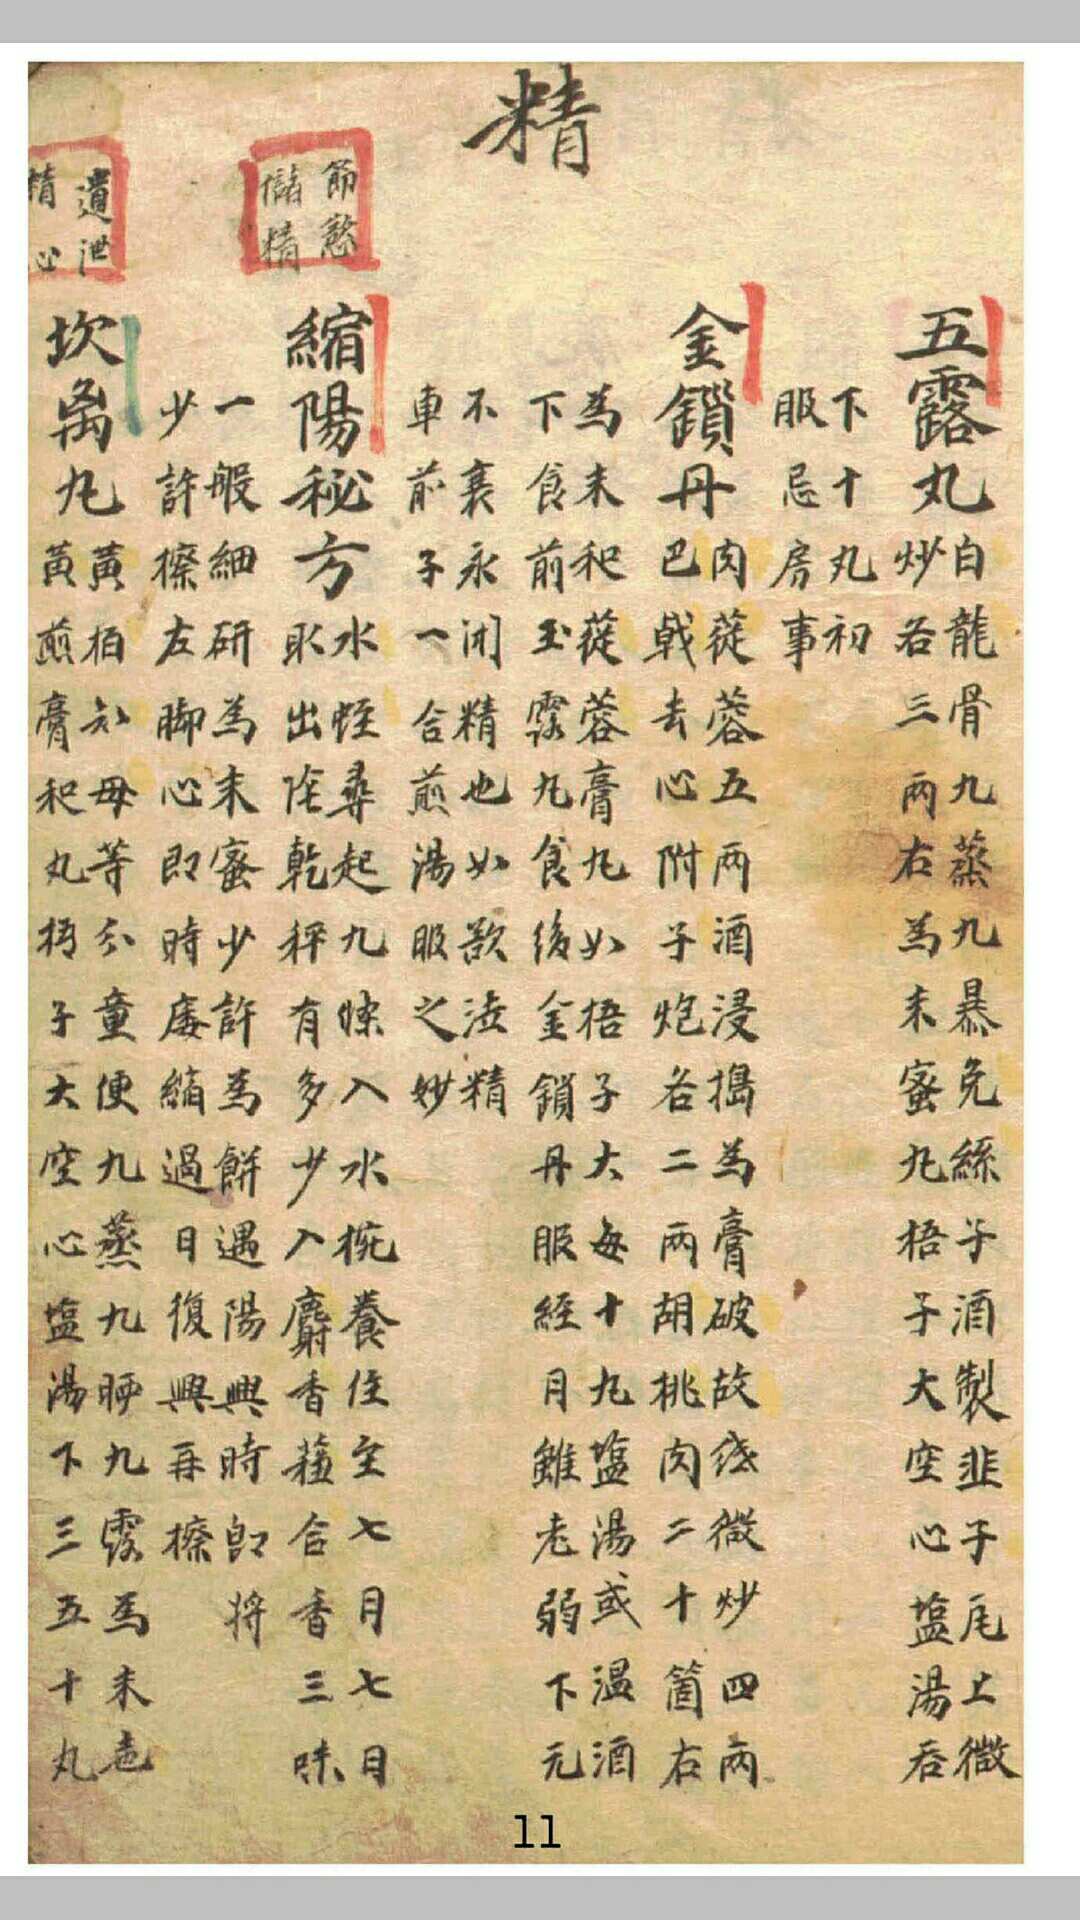 精
五露丸
白龍骨九蒸九暴兔絲子酒製韭子瓦上微
炒各三兩右為末蜜丸梧子大空心塩湯吞
下十丸初
服忌房事
金鎖丹
肉蓯蓉五兩酒浸搗為膏破故紙微炒四兩
巴戟去心附子炮各二兩胡桃肉二十箇右
為末和蓯蓉膏丸如梧子大每十丸塩湯或温酒
下食前玉露丸食後金鎖丹服經月雖老弱下元
不衰永闭精也如欲泄精
車前子一合煎湯服之妙
節慾
儲精
縮陽秘方
水蛭尋起九條入水梡養住至七月七日
取出陰乾秤有多少入麝香蘓合香三味
一般細研為末蜜少許為餅遇陽興時即将
少許擦左脚心即時痿縮過日復興再擦
遺泄
精心
坎离丸
黃栢知母等分童便九蒸九晒九露為末地
黃煎膏和丸梧子大空心塩湯下三五十丸
11